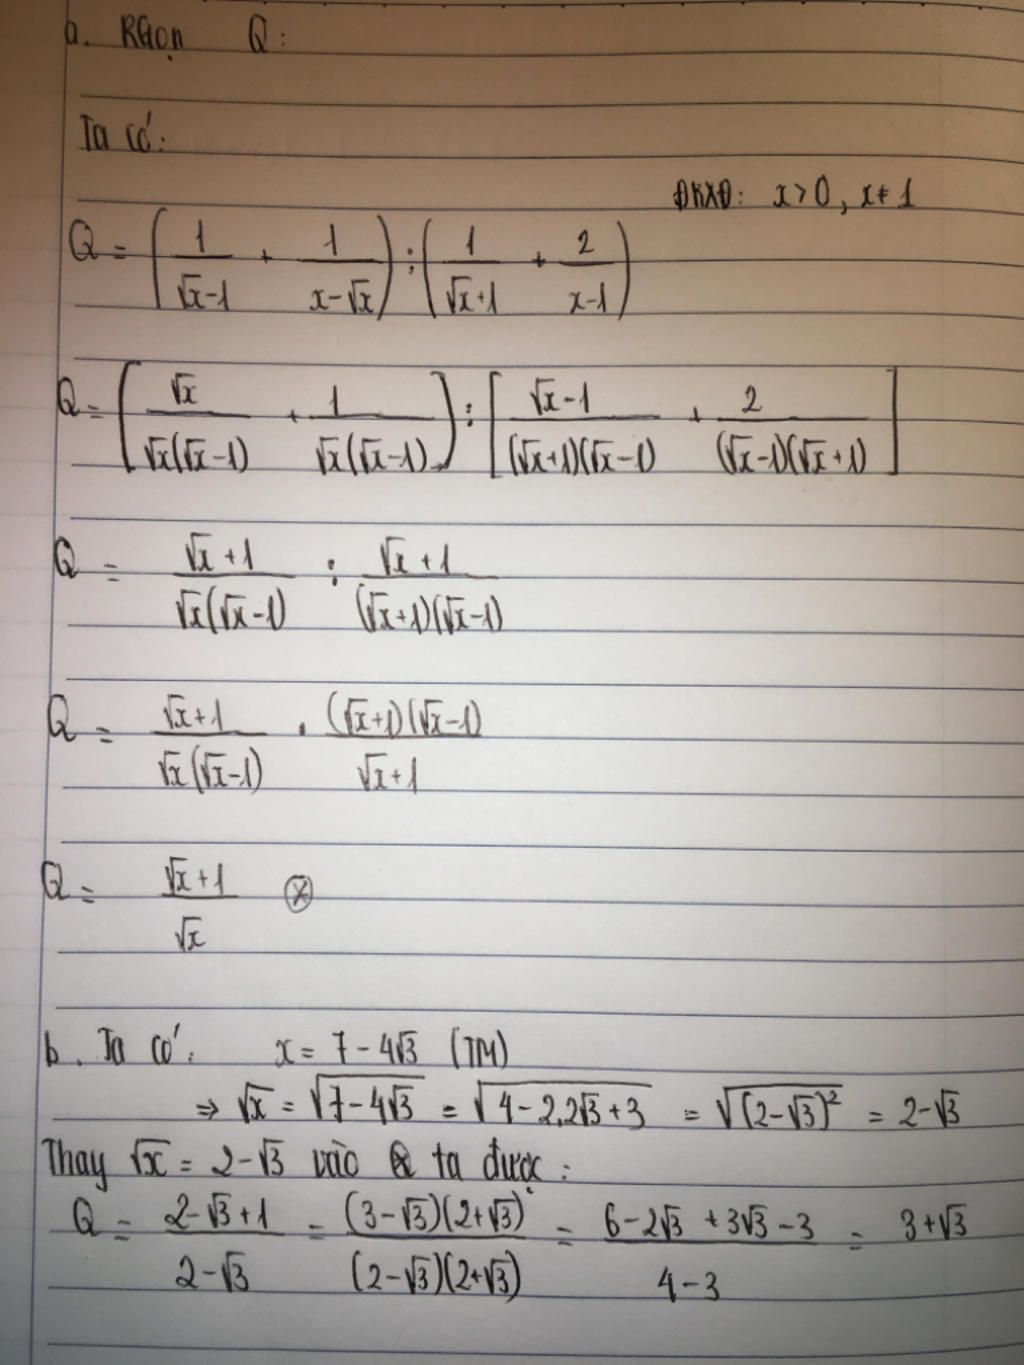 a. RGọn Q:
Ta có:
ĐKXĐ: x>0, x≠1
Q = (1/(√x-1) + 1/(x-√x)) : (1/(√x+1) + 2/(x-1))
Q = [√x/(√x(√x-1)) + 1/(√x(√x-1))] : [(√x-1)/((√x+1)(√x-1)) + 2/((√x-1)(√x+1))]
Q = (√x+1)/(√x(√x-1)) : (√x+1)/((√x+1)(√x-1))
Q = (√x+1)/(√x(√x-1)) . ((√x+1)(√x-1))/(√x+1)
Q = (√x+1)/√x ⊛
b. Ta có: x = 7-4√3 (TM)
⇒ √x = √(7-4√3) = √(4-2.2√3+3) = √((2-√3)²) = 2-√3
Thay √x = 2-√3 vào Q ta được:
Q = (2-√3+1)/(2-√3) = ((3-√3)(2+√3))/((2-√3)(2+√3)) = (6-2√3+3√3-3)/(4-3) = 3+√3